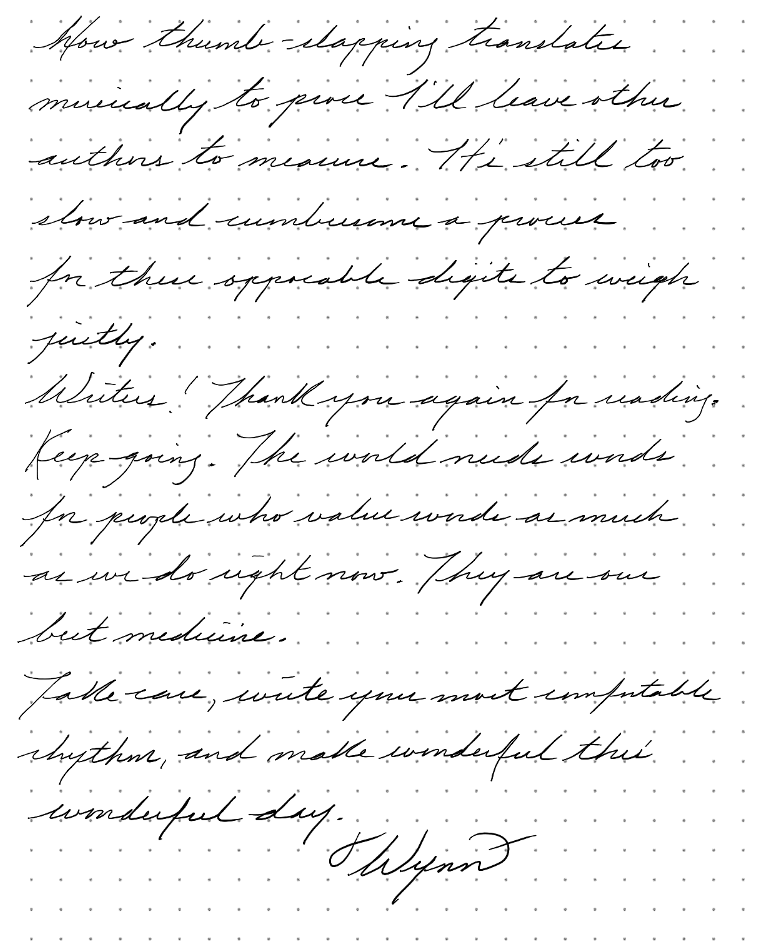 How thumb-slapping translates
musically to prose I'll leave other
authors to measure. It's still too
slow and cumbersome a process
for these opposable digits to weigh
justly.
Writers! Thank you again for reading.
Keep going. The world needs words
for people who value words as much
as we do right now. They are our
best medicine.
Take care, write your most comfortable
rhythm, and make wonderful this
wonderful day.
Wynn